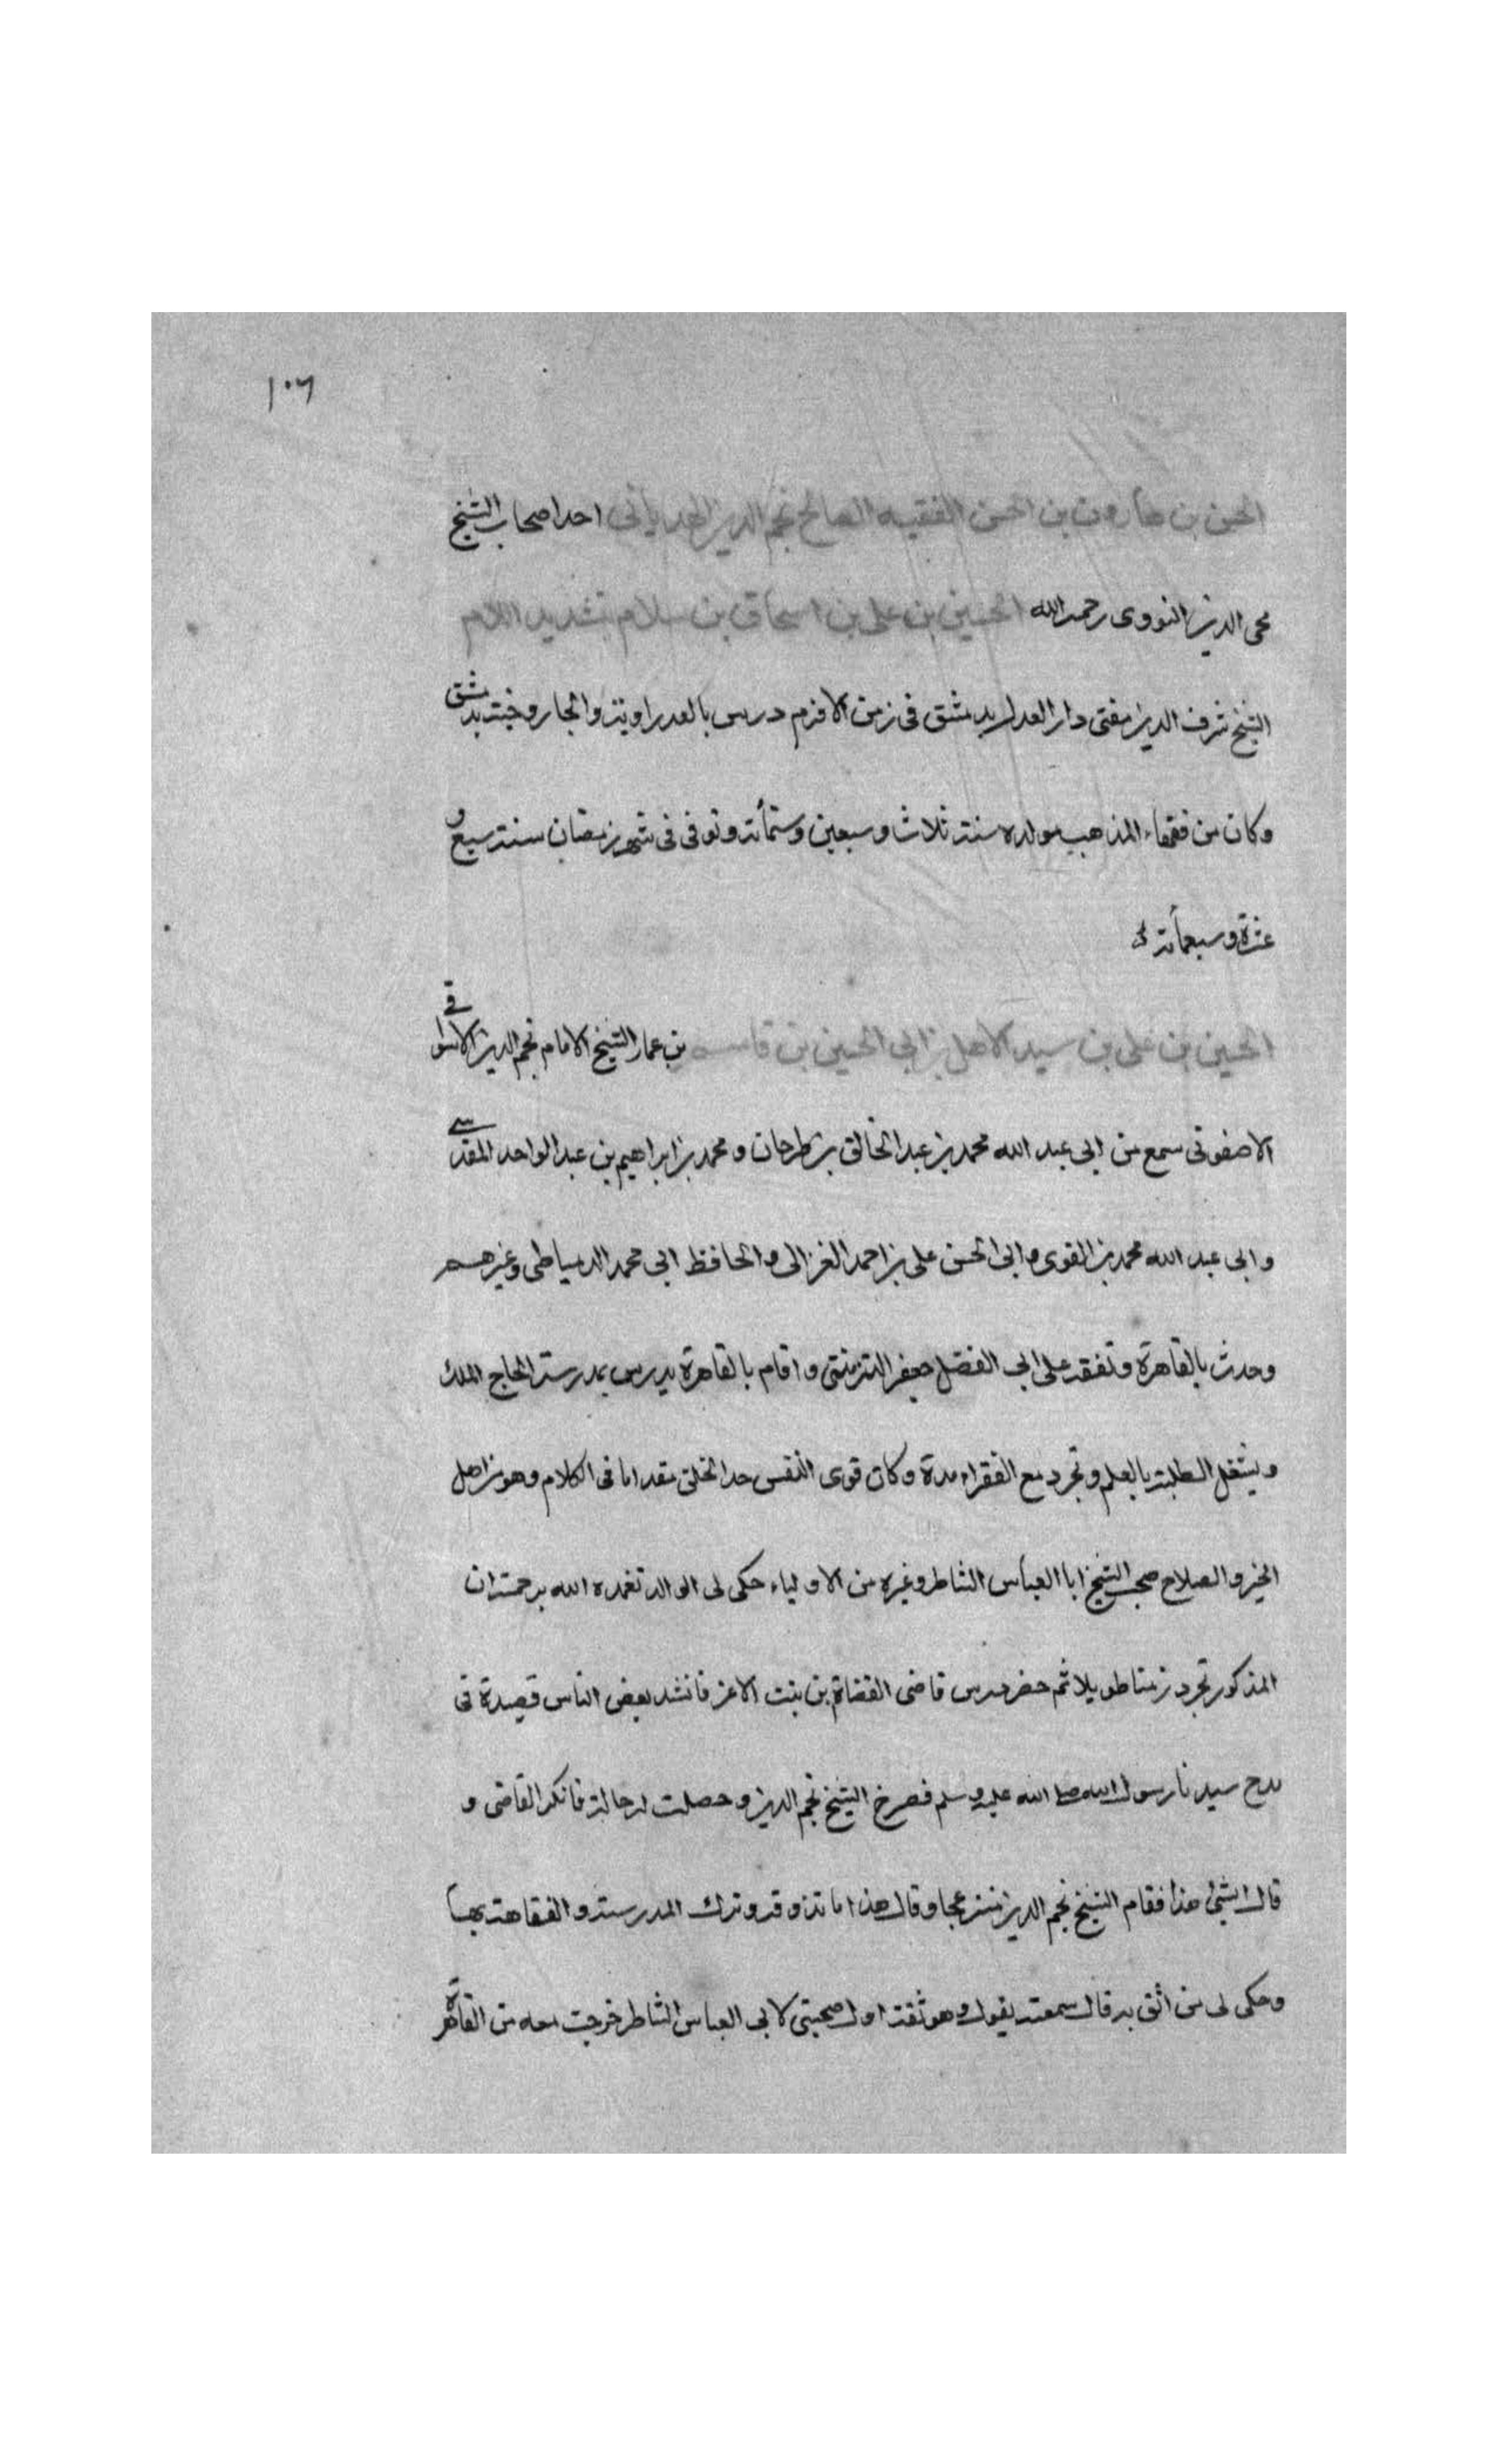 ١٠٦
الحسن بن هارون بن الحسن الفقيه الصالح نجم الدين الهدبانى احد اصحاب الشيخ
محى الدين النووى رحمه الله الحسين بن على بن اسحاق بن سلام بتشديد اللام
الشيخ شرف الدين مفتى دار العدل بدمشق فى زمن الافرم درس بالعدراوية والجاروخية بدمشق
وكان من فقهاء المذهب مولده سنة ثلاث وسبعين وستمأئة وتوفى فى شهر رمضان سنة سبع و
عشرة وسبعمأئة
الحسين بن على بن سيد الاهل بن ابى الحسين بن قاسم بن عمار الشيخ الامام نجم الدين الاسوانى
الاصفونى سمع من ابى عبد الله محمد بن عبد الخالق بن طرخان ومحمد بن ابراهيم بن عبد الواحد المقدسى
وابى عبد الله محمد بن القوى وابى الحسن على بن احمد الغرالى والحافظ ابى محمد الدمياطى وغيرهم
وحدث بالقاهرة وتفقه على ابى الفضل جعفر التزمنتى واقام بالقاهرة يدرس بمدرسة الحاج الملك
ويشغل الطلبة بالعلم وتجرد مع الفقراء مدة وكان قوى النفس حد الخلق مقداما فى الكلام وهو من اهل
الخير والصلاح صحب الشيخ ابا العباس الشاطر وغيره من الاولياء حكى لى الوالد تغمده الله برحمته ان
المذكور تجرد زمنا طويلا ثم حضر درس قاضى القضاة بن بنت الاعز فانشد بعض الناس قصيدة فى
مدح سيدنا رسول الله صلى الله عليه وسلم فصرخ الشيخ نجم الدين وحصلت له حالة فانكر القاضى و
قال ايش هذا فقام الشيخ نجم الدين منزعجا وقال هذا ما تذوقه وترك المدرسة والفقاهة بها
وحكى لى من اثق به قال سمعته يقول وهو ثقة اول صحبتى لابى العباس الشاطر خرجت معه من القاهرة